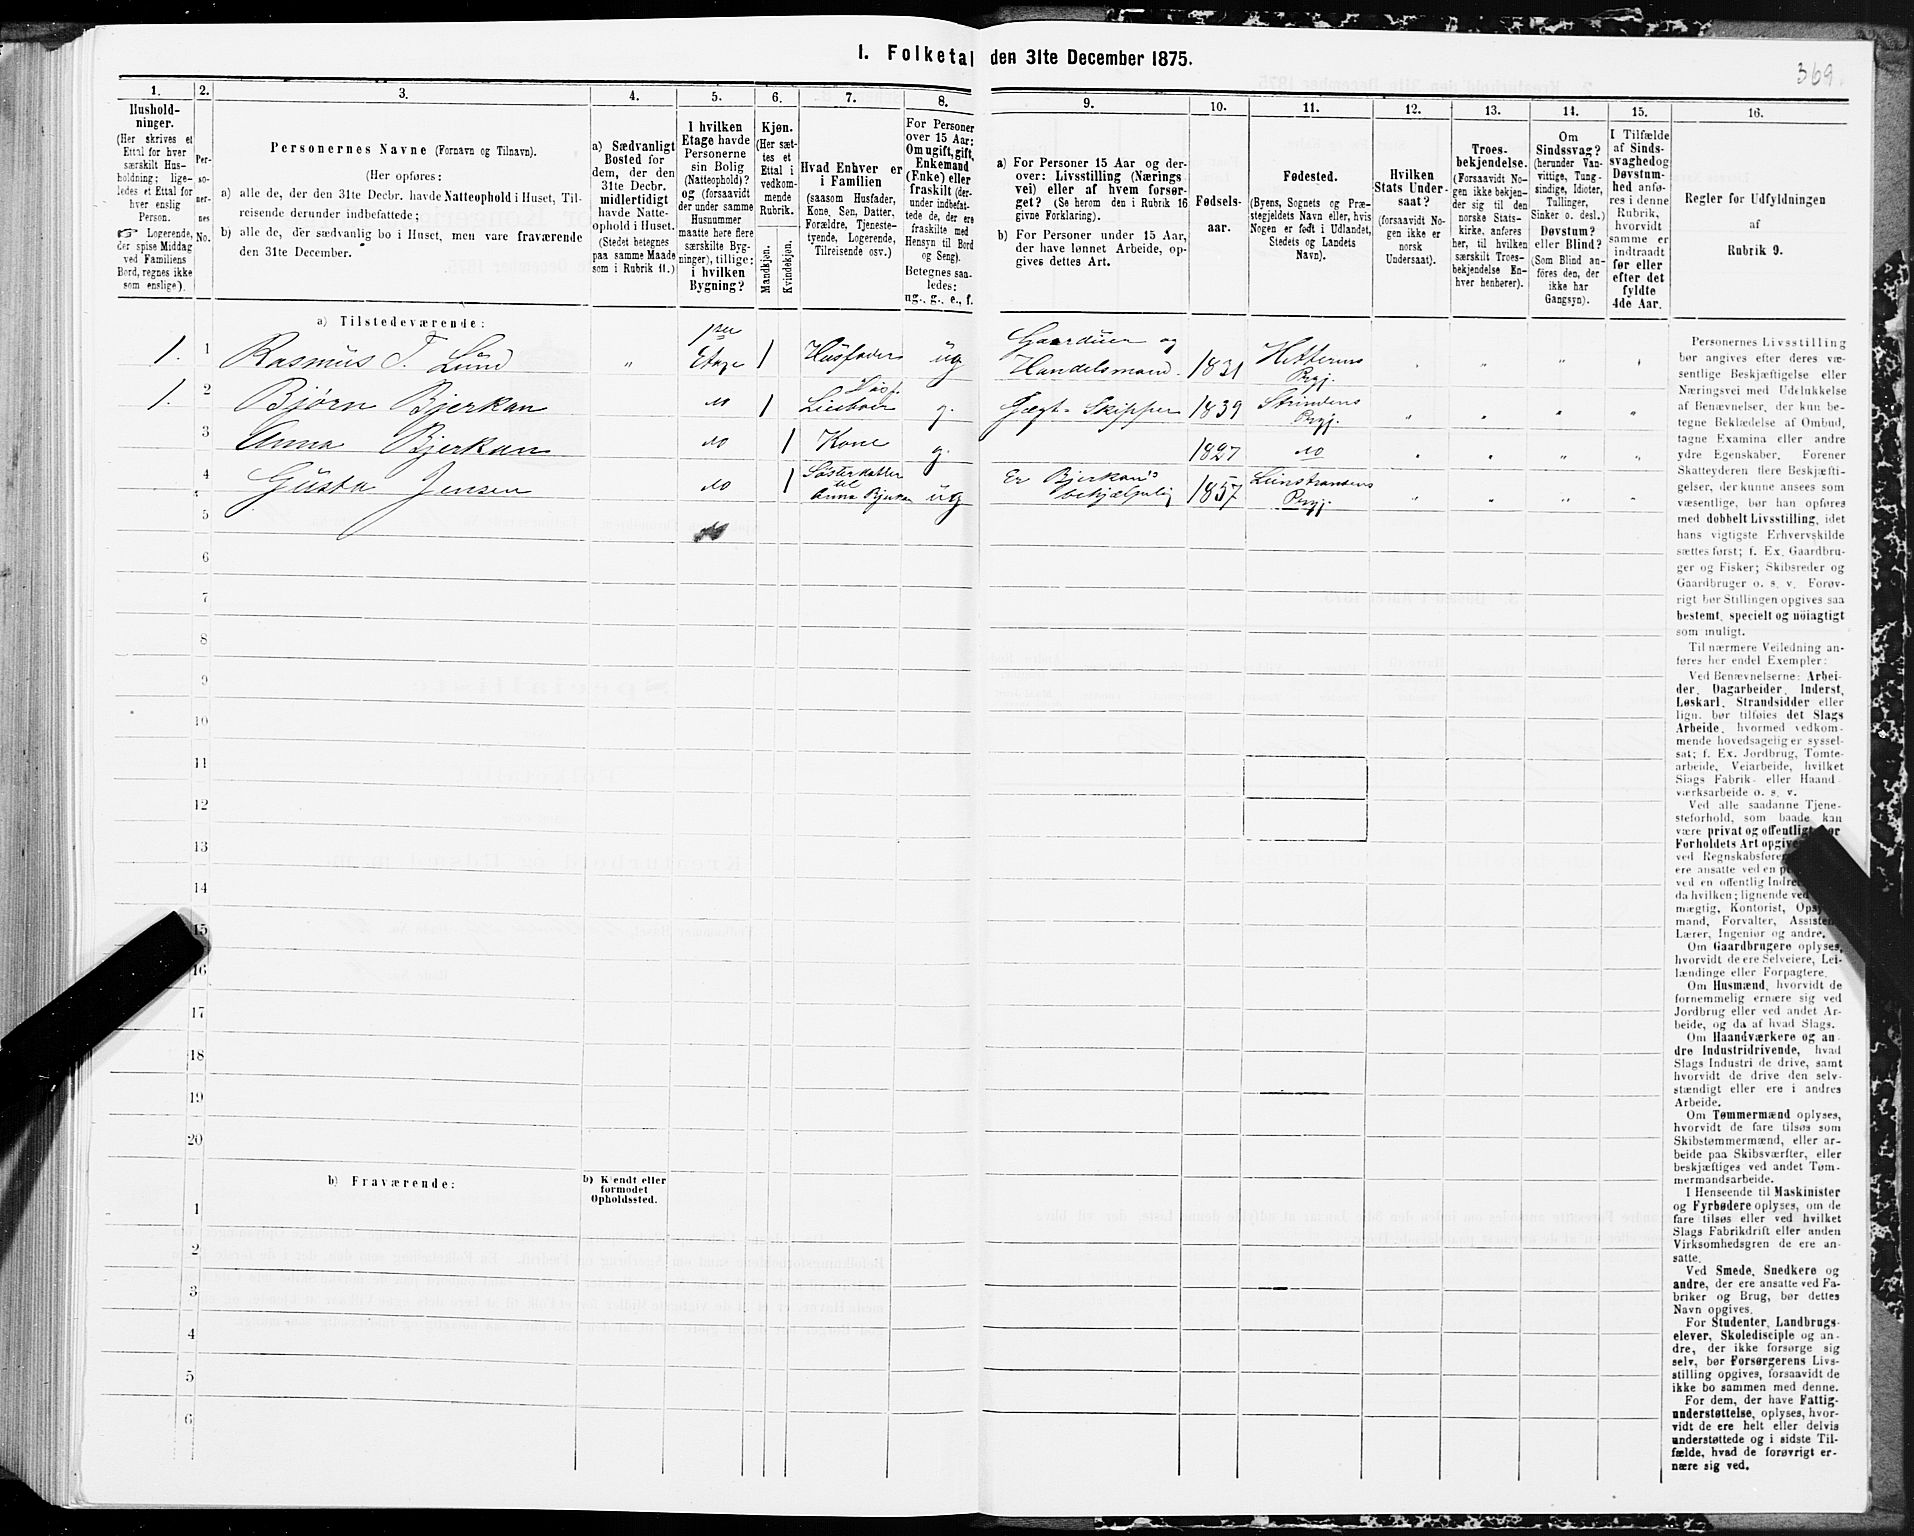 1. Folketal den 31te December 1875.
369.
1.
Hushold-
ninger.
(Her skrives et
Ettal for hver
særskilt Hus-
holdning; lige-
ledes et Ettal for
hver enslig
Person.
☞ Logerende,
der spise Middag
ved Familiens
Bord, regnes ikke
som enslige).
2.
Per-
so-
ner-
nes
No.
3.
Personernes Navne (Fornavn og Tilnavn).
(Her opføres:
a) alle de, der den 31te Decbr. havde Natteophold i Huset, Til-
reisende derunder indbefattede;
b) alle de, der sædvanlig bo i Huset, men vare fraværende
den 31te December.
4.
a) Sædvanligt
Bosted for
dem, der den
31te Decbr.
midlertidigt
havde Natte-
ophold i Huset.
(Stedet betegnes
paa samme Maade
som i Rubrik 11.)
5.
I hvilken
Etage havde
Personerne
sin Bolig
(Natteophold)?
og (forsaavidt
der under samme
Husnummer
maatte høre flere
særskilte Byg-
ninger), tillige:
i hvilken
Bygning?
6.
Kjøn.
(Her sæt-
tes et
Ettal i
vedkom-
mende
Rubrik.
Mandkjøn.
Kvindekjøn.
7.
Hvad Enhver er
i Familien
(saasom Husfader,
Kone, Søn, Datter,
Forældre, Tjeneste-
tyende, Logerende,
Tilreisende osv.)
8.
For Personer
over 15 Aar:
Om ugift, gift,
Enkemand
(Enke) eller
fraskilt (der-
under indbefat-
tede de, der ere
fraskilte med
Hensyn til Bord
og Seng).
Betegnes saa-
ledes:
ug., g., e., f.
9.
a) For Personer 15 Aar og der-
over: Livsstilling (Nærings
vei) eller af hvem forsør-
get? (Se herom den i Rubrik 16
givne Forklaring).
b) For Personer under 15 Aar,
der have lønnet Arbeide, op-
gives dettes Art.
10.
Fødsels-
aar.
11.
Fødested.
(Byens, Sognets og Præ-
stegjeldets Navn eller, hvis
Nogen er født i Udlandet,
Stedets og Landets
Navn).
12.
Hvilken
Stats Under-
saat?
(forsaavidt No-
gen ikke er
norsk
Undersaat).
13.
Troes-
bekjendelse.
(Forsaavidt No-
gen ikke bekjen-
der sig til den
norske Stats-
kirke, anføres
her, til hvilken
særskilt Troes-
bekjendelse En-
hver henhører).
14.
Om
Sindssvag?
(herunder Van-
vittige, Tung-
sindige, Idioter,
Tullinger,
Sinker o. desl.)
Døvstum?
eller Blind?
(Som Blind an-
føres den, der
ikke har
Gangsyn).
15.
I Tilfælde
af Sinds-
svaghed og
Døvstum-
hed anfø-
res i denne
Rubrik,
hvorvidt
samme er
indtraadt
før eller
efter det
fyldte
4de Aar.
16.
Regler for Udfyldningen
af
Rubrik 9.
a) Tilstedeværende:
1. 1 Rasmus T. Lund " 1ste Etage 1 Husfader ug Gaardeier og Handelsmand. 1831 Hitterens Prgj. " " " "
1. 2 Bjørn Bjerkan do 1 g. Jægt-Skipper 1839 Strindens Prgj. " " " "
3 Anna Bjerkan do 1 Kone g. 1827 do " " " "
4 Gusta Jensen do 1 Søsterdatter til Anna Bjerkan ug Er Bjerkan's behjælpelig 1857 Prgj. " " " "
5
6
7
8
9
10
11
12
13
14
15
16
17
18
19
20
b) Fraværende:
b) Kjendt eller
formodet
Opholdssted.
1
2
3
4
5
6
Personernes Livsstilling
bør angives efter deres væ-
sentlige Beskjæftigelse eller
Næringsvei med Udelukkelse
af Benævnelser, der kun be-
tegne Beklædelse af Ombud,
tagne Examina eller andre
ydre Egenskaber. Forener
Skatteyderen flere Beskjæfti-
gelser, der kunne ansees som
væsentlige, bør han opføres
med dobbelt Livsstilling, idet
hans vigtigste Erhvervskilde
sættes først; f. Ex. Gaardbru-
ger og Fisker; Skibsreder og
Gaardbruger o. s. v. Forøv-
rigt bør Stillingen opgives saa
bestemt, specielt og nøiagtigt
som muligt.
Til nærmere Veiledning an-
føres her endel Exempler:
Ved Benævnelserne: Arbei-
der, Dagarbeider, Inderst,
Løskarl, Strandsidder eller
lign. bør tilføies det Slags
Arbeide, hvormed vedkom-
mende hovedsagelig er syssel-
sat; f. Ex. Jordbrug, Tomte-
arbeide, Veiarbeide, hvilket
Slags Fabrik- eller Haand-
værksarbeide o. s. v.
Ved alle saadanne Tjene-
steforhold, som baade kan
være privat og offentligt, bør
Forholdets Art opgives
ved Regnskabsfører
ere ansatte ved en
ved en offentlig Indre
da hvilken; lignende ved
mægtig, Kontorist, Opsy
mand, Forvalter, Assistent,
Lærer, Ingeniør og andre.
Om Gaardbrugere oplyses,
hvorvidt de ere Selveiere, Lei-
lændinge eller Forpagtere.
Om Husmænd, hvorvidt de
fornemmelig ernære sig ved
Jordbrug eller ved andet Ar-
beide, og da af hvad Slags.
Om Haandværkere og an-
dre Industridrivende, hvad
Slags Industri de drive, samt
hvorvidt de drive den selv-
stændigt eller ere i andres
Arbeide.
Om Tømmermænd oplyses,
hvorvidt de fare tilsøs som
Skibstømmermænd, eller ar-
beide paa Skibsværfter, eller
beskjæftiges ved andet Tøm-
mermandsarbeide.
I Henseende til Maskinister
og Fyrbødere oplyses, om de
fare tilsøs eller ved hvilket
Slags Fabrikdrift eller anden
Virksomhedsgren de ere an-
satte.
Ved Smede, Snedkere og
andre, der ere ansatte ved Fa-
briker og Brug, bør dettes
Navn opgives.
For Studenter, Landbrugs-
elever, Skoledisciple og an-
dre, der ikke forsørge sig
selv, bør Forsørgerens Livs-
stilling opgives, forsaavidt de
ikke bo sammen med denne.
For dem, der have Fattig-
understøttelse, oplyses, hvor-
vidt de ere helt eller delvis
understøttede og i sidste Til-
fælde, hvad de forøvrigt er-
nære sig ved.